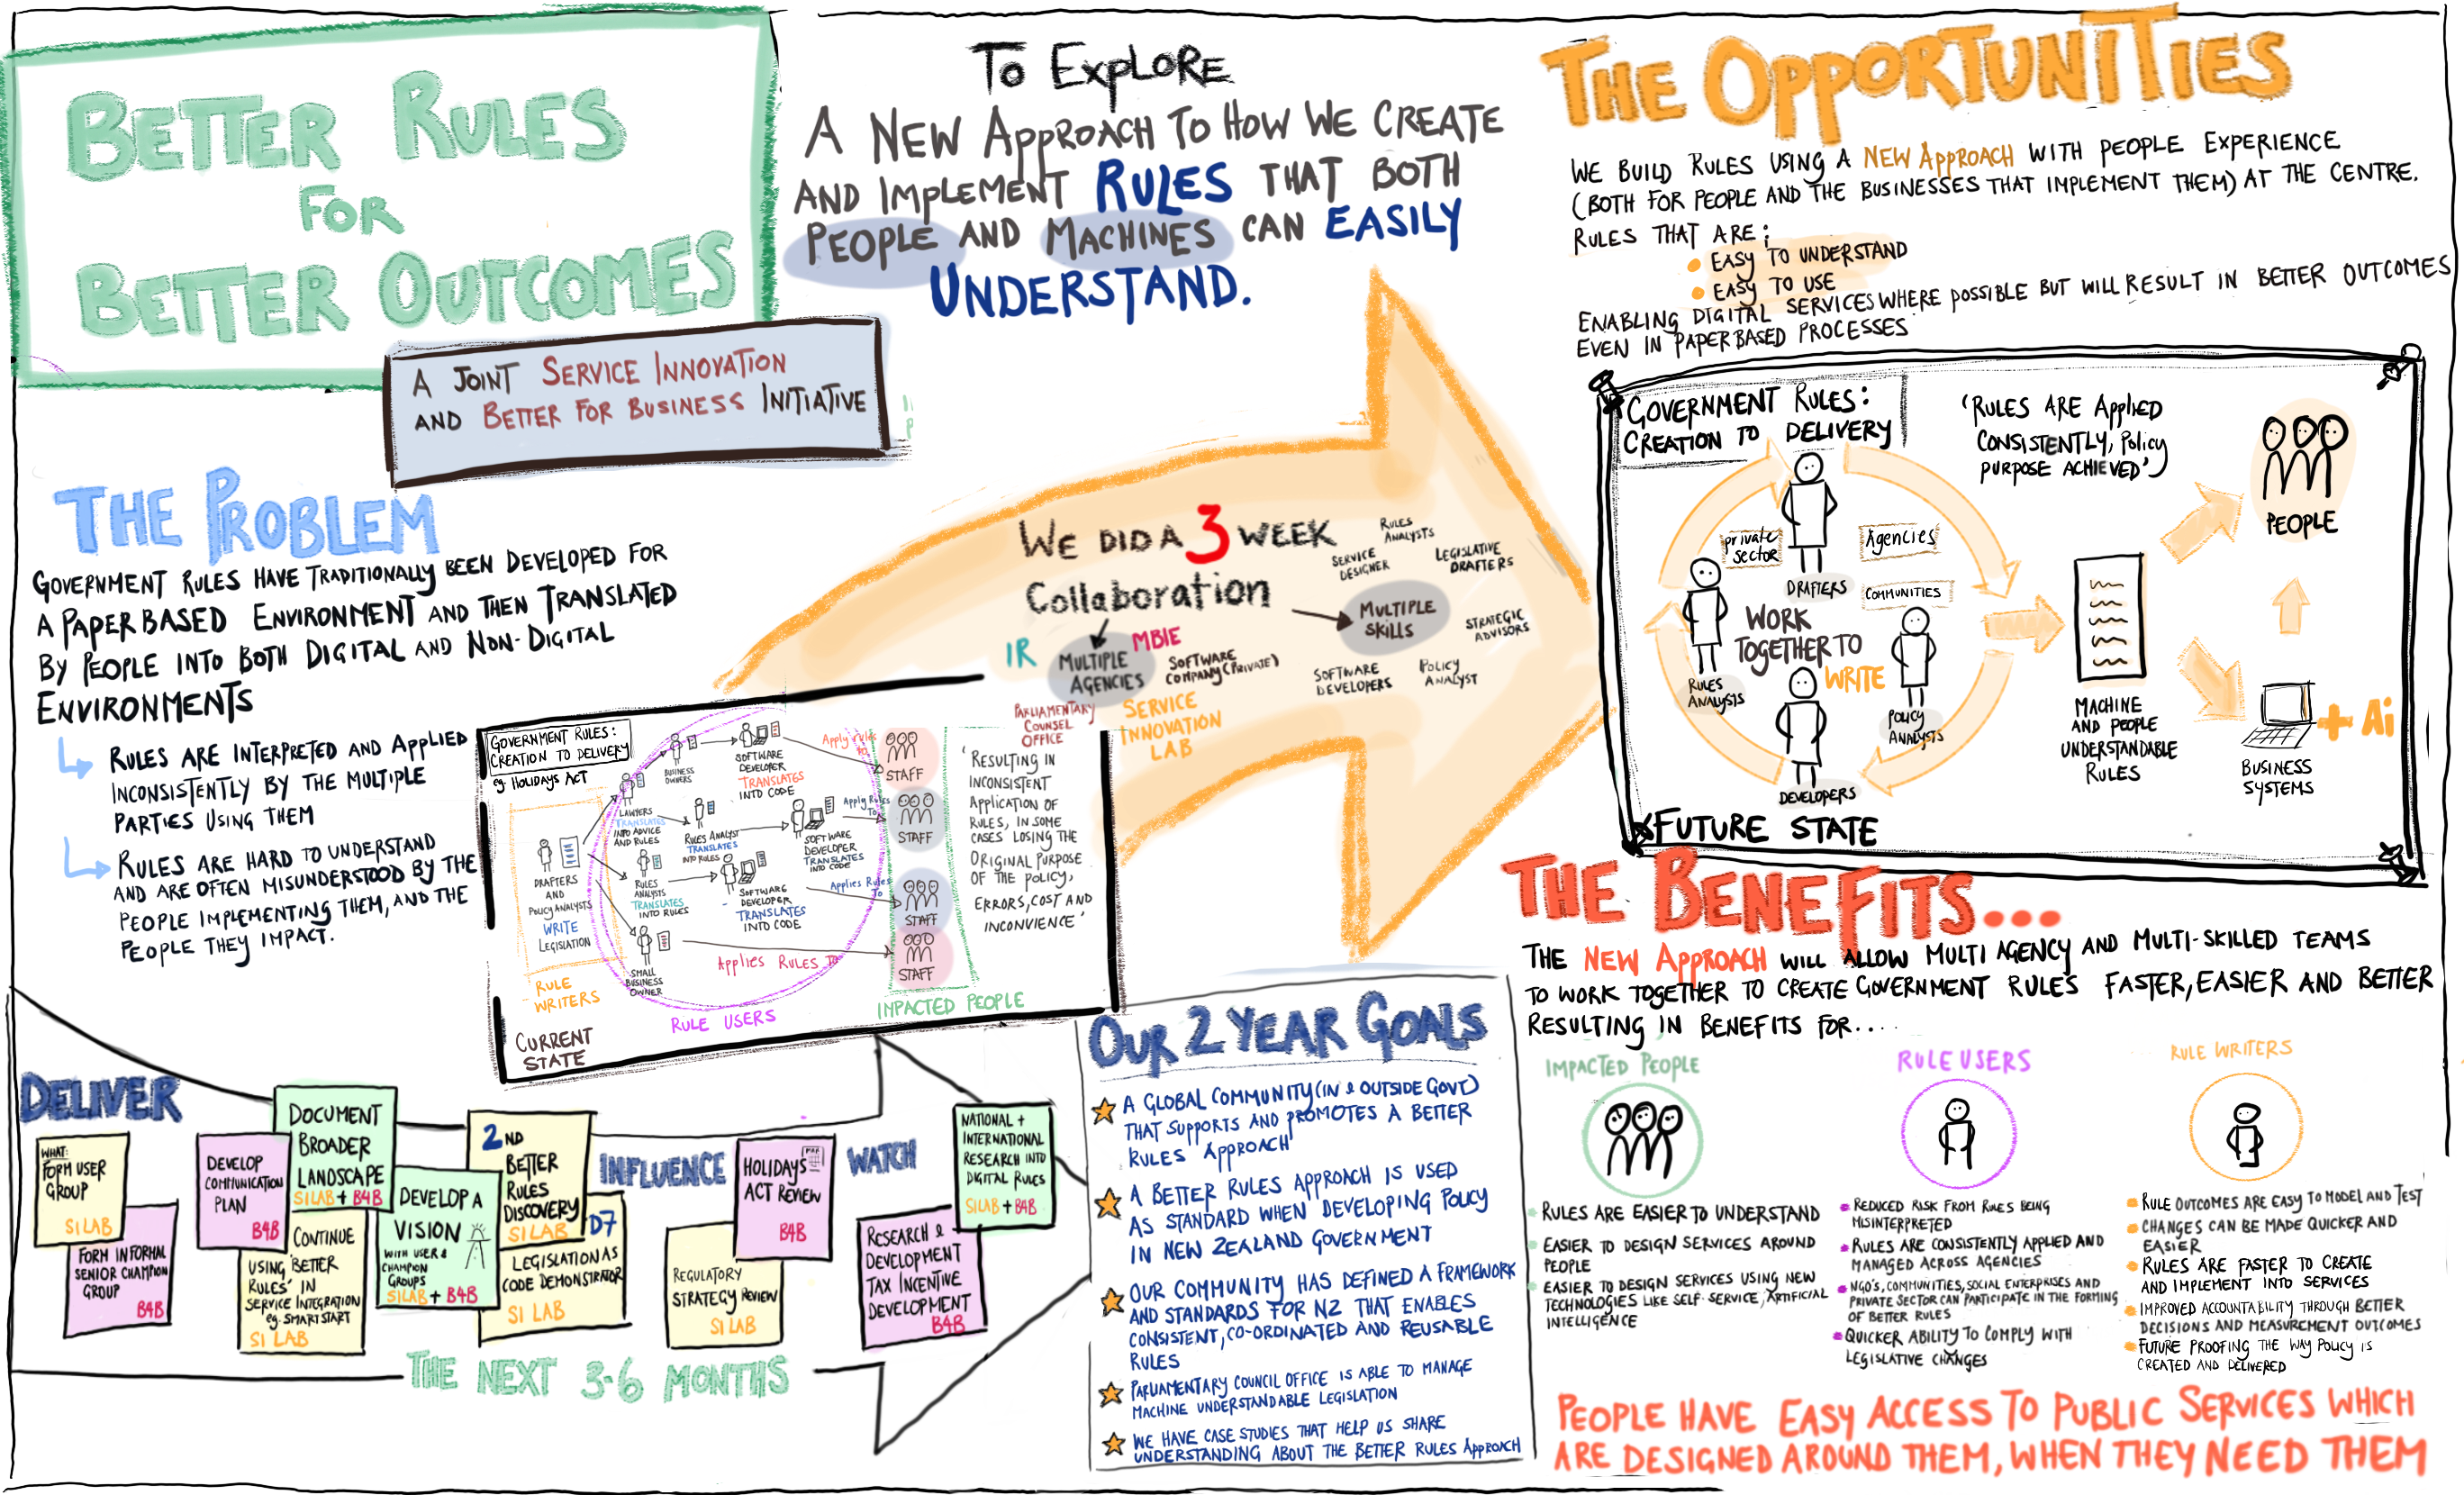 BETTER RULES
FOR
BETTER OUTCOMES
A JOINT SERVICE INNOVATION
AND BETTER FOR BUSINESS INITIATIVE
TO EXPLORE
A NEW APPROACH TO HOW WE CREATE
AND IMPLEMENT RULES THAT BOTH
PEOPLE AND MACHINES CAN EASILY
UNDERSTAND.
THE PROBLEM
GOVERNMENT RULES HAVE TRADITIONALLY BEEN DEVELOPED FOR
A PAPER BASED ENVIRONMENT AND THEN TRANSLATED
BY PEOPLE INTO BOTH DIGITAL AND NON-DIGITAL
ENVIRONMENTS
RULES ARE INTERPRETED AND APPLIED
INCONSISTENTLY BY THE MULTIPLE
PARTIES USING THEM
RULES ARE HARD TO UNDERSTAND
AND ARE OFTEN MISUNDERSTOOD BY THE
PEOPLE IMPLEMENTING THEM, AND THE
PEOPLE THEY IMPACT.
GOVERNMENT RULES:
CREATION TO DELIVERY
eg HOLIDAYS ACT
DRAFTERS
AND
POLICY ANALYSTS
WRITE
LEGISLATION
RULE
WRITERS
LAWYERS
TRANSLATES
INTO ADVICE
AND RULES
BUSINESS
OWNERS
SOFTWARE
DEVELOPER
TRANSLATES
INTO CODE
RULES ANALYST
TRANSLATES
INTO RULES
SOFTWARE
DEVELOPER
TRANSLATES
INTO CODE
RULES
ANALYSTS
TRANSLATES
INTO RULES
SOFTWARE
DEVELOPER
TRANSLATES
INTO CODE
SMALL
BUSINESS
OWNER
Apply rules
to
Apply Rules
To
Applies Rules
To
APPLIES RULES TO
STAFF
STAFF
STAFF
STAFF
RULE USERS
IMPACTED PEOPLE
'RESULTING IN
INCONSISTENT
APPLICATION OF
RULES, IN SOME
CASES LOSING THE
ORIGINAL PURPOSE
OF THE POLICY,
ERRORS, COST AND
INCONVIENCE'
CURRENT
STATE
WE DID A 3 WEEK
Collaboration
MULTIPLE
AGENCIES
IR
MBIE
SOFTWARE
COMPANY (PRIVATE)
PARLIAMENTARY
COUNSEL
OFFICE
SERVICE
INNOVATION
LAB
MULTIPLE
SKILLS
SERVICE
DESIGNER
RULES
ANALYSTS
LEGISLATIVE
DRAFTERS
STRATEGIC
ADVISORS
POLICY
ANALYST
SOFTWARE
DEVELOPERS
THE OPPORTUNITIES
WE BUILD RULES USING A NEW APPROACH WITH PEOPLE EXPERIENCE
(BOTH FOR PEOPLE AND THE BUSINESSES THAT IMPLEMENT THEM) AT THE CENTRE.
RULES THAT ARE:
EASY TO UNDERSTAND
EASY TO USE
ENABLING DIGITAL SERVICES WHERE POSSIBLE BUT WILL RESULT IN BETTER OUTCOMES
EVEN IN PAPER BASED PROCESSES
GOVERNMENT RULES:
CREATION TO DELIVERY
'RULES ARE APPLIED
CONSISTENTLY, POLICY
PURPOSE ACHIEVED'
private
sector
Agencies
DRAFTERS
COMMUNITIES
WORK
TOGETHER TO
WRITE
RULES
ANALYSTS
POLICY
ANALYSTS
DEVELOPERS
MACHINE
AND PEOPLE
UNDERSTANDABLE
RULES
PEOPLE
BUSINESS
SYSTEMS
+ Ai
FUTURE STATE
THE BENEFITS...
THE NEW APPROACH WILL ALLOW MULTI AGENCY AND MULTI-SKILLED TEAMS
TO WORK TOGETHER TO CREATE GOVERNMENT RULES FASTER, EASIER AND BETTER
RESULTING IN BENEFITS FOR....
IMPACTED PEOPLE
RULES ARE EASIER TO UNDERSTAND
EASIER TO DESIGN SERVICES AROUND
PEOPLE
EASIER TO DESIGN SERVICES USING NEW
TECHNOLOGIES LIKE SELF-SERVICE, ARTIFICIAL
INTELLIGENCE
RULE USERS
REDUCED RISK FROM RULES BEING
MISINTERPRETED
RULES ARE CONSISTENTLY APPLIED AND
MANAGED ACROSS AGENCIES
NGO'S, COMMUNITIES, SOCIAL ENTERPRISES AND
PRIVATE SECTOR CAN PARTICIPATE IN THE FORMING
OF BETTER RULES
QUICKER ABILITY TO COMPLY WITH
LEGISLATIVE CHANGES
RULE WRITERS
RULE OUTCOMES ARE EASY TO MODEL AND TEST
CHANGES CAN BE MADE QUICKER AND
EASIER
RULES ARE FASTER TO CREATE
AND IMPLEMENT INTO SERVICES
IMPROVED ACCOUNTABILITY THROUGH BETTER
DECISIONS AND MEASUREMENT OUTCOMES
FUTURE PROOFING THE WAY POLICY IS
CREATED AND DELIVERED
PEOPLE HAVE EASY ACCESS TO PUBLIC SERVICES WHICH
ARE DESIGNED AROUND THEM, WHEN THEY NEED THEM
DELIVER
WHAT:
FORM USER
GROUP
SI LAB
FORM INFORMAL
SENIOR CHAMPION
GROUP
B4B
DEVELOP
COMMUNICATION
PLAN
B4B
DOCUMENT
BROADER
LANDSCAPE
SILAB + B4B
CONTINUE
USING 'BETTER
RULES' IN
SERVICE INTEGRATION
eg. SMARTSTART
SI LAB
DEVELOP A
VISION
WITH USER &
CHAMPION
GROUPS
SILAB + B4B
2ND
BETTER
RULES
DISCOVERY
SILAB
D7
LEGISLATION AS
CODE DEMONSTRATOR
SI LAB
INFLUENCE
REGULATORY
STRATEGY REVIEW
SI LAB
HOLIDAYS
ACT REVIEW
B4B
WATCH
RESEARCH &
DEVELOPMENT
TAX INCENTIVE
DEVELOPMENT
B4B
NATIONAL +
INTERNATIONAL
RESEARCH INTO
DIGITAL RULES
SILAB + B4B
THE NEXT 3-6 MONTHS
OUR 2 YEAR GOALS
A GLOBAL COMMUNITY (IN & OUTSIDE GOVT)
THAT SUPPORTS AND PROMOTES A BETTER
RULES' APPROACH
A BETTER RULES APPROACH IS USED
AS STANDARD WHEN DEVELOPING POLICY
IN NEW ZEALAND GOVERNMENT
OUR COMMUNITY HAS DEFINED A FRAMEWORK
AND STANDARDS FOR NZ THAT ENABLES
CONSISTENT, CO-ORDINATED AND REUSABLE
RULES
PARLIAMENTARY COUNCIL OFFICE IS ABLE TO MANAGE
MACHINE UNDERSTANDABLE LEGISLATION
WE HAVE CASE STUDIES THAT HELP US SHARE
UNDERSTANDING ABOUT THE BETTER RULES APPROACH